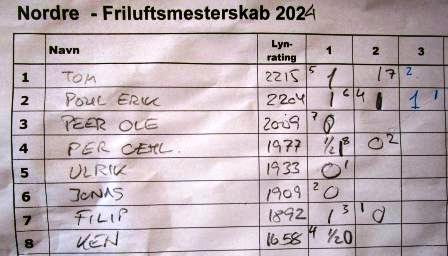 Nordre - Friluftsmesterskab 2024
Navn Lyn-rating 1 2 3
1 TOM 2215 5 1 1 7 2
2 POUL ERIK 2204 1 6 4 1 1 1
3 PEER OLE 2009 7 0
4 PER 1977 ½ 8 0 2
5 ULRIK 1933 0 1
6 JONAS 1909 2 0
7 FILIP 1892 1 3 1 0
8 KEN 1658 4 ½ 0